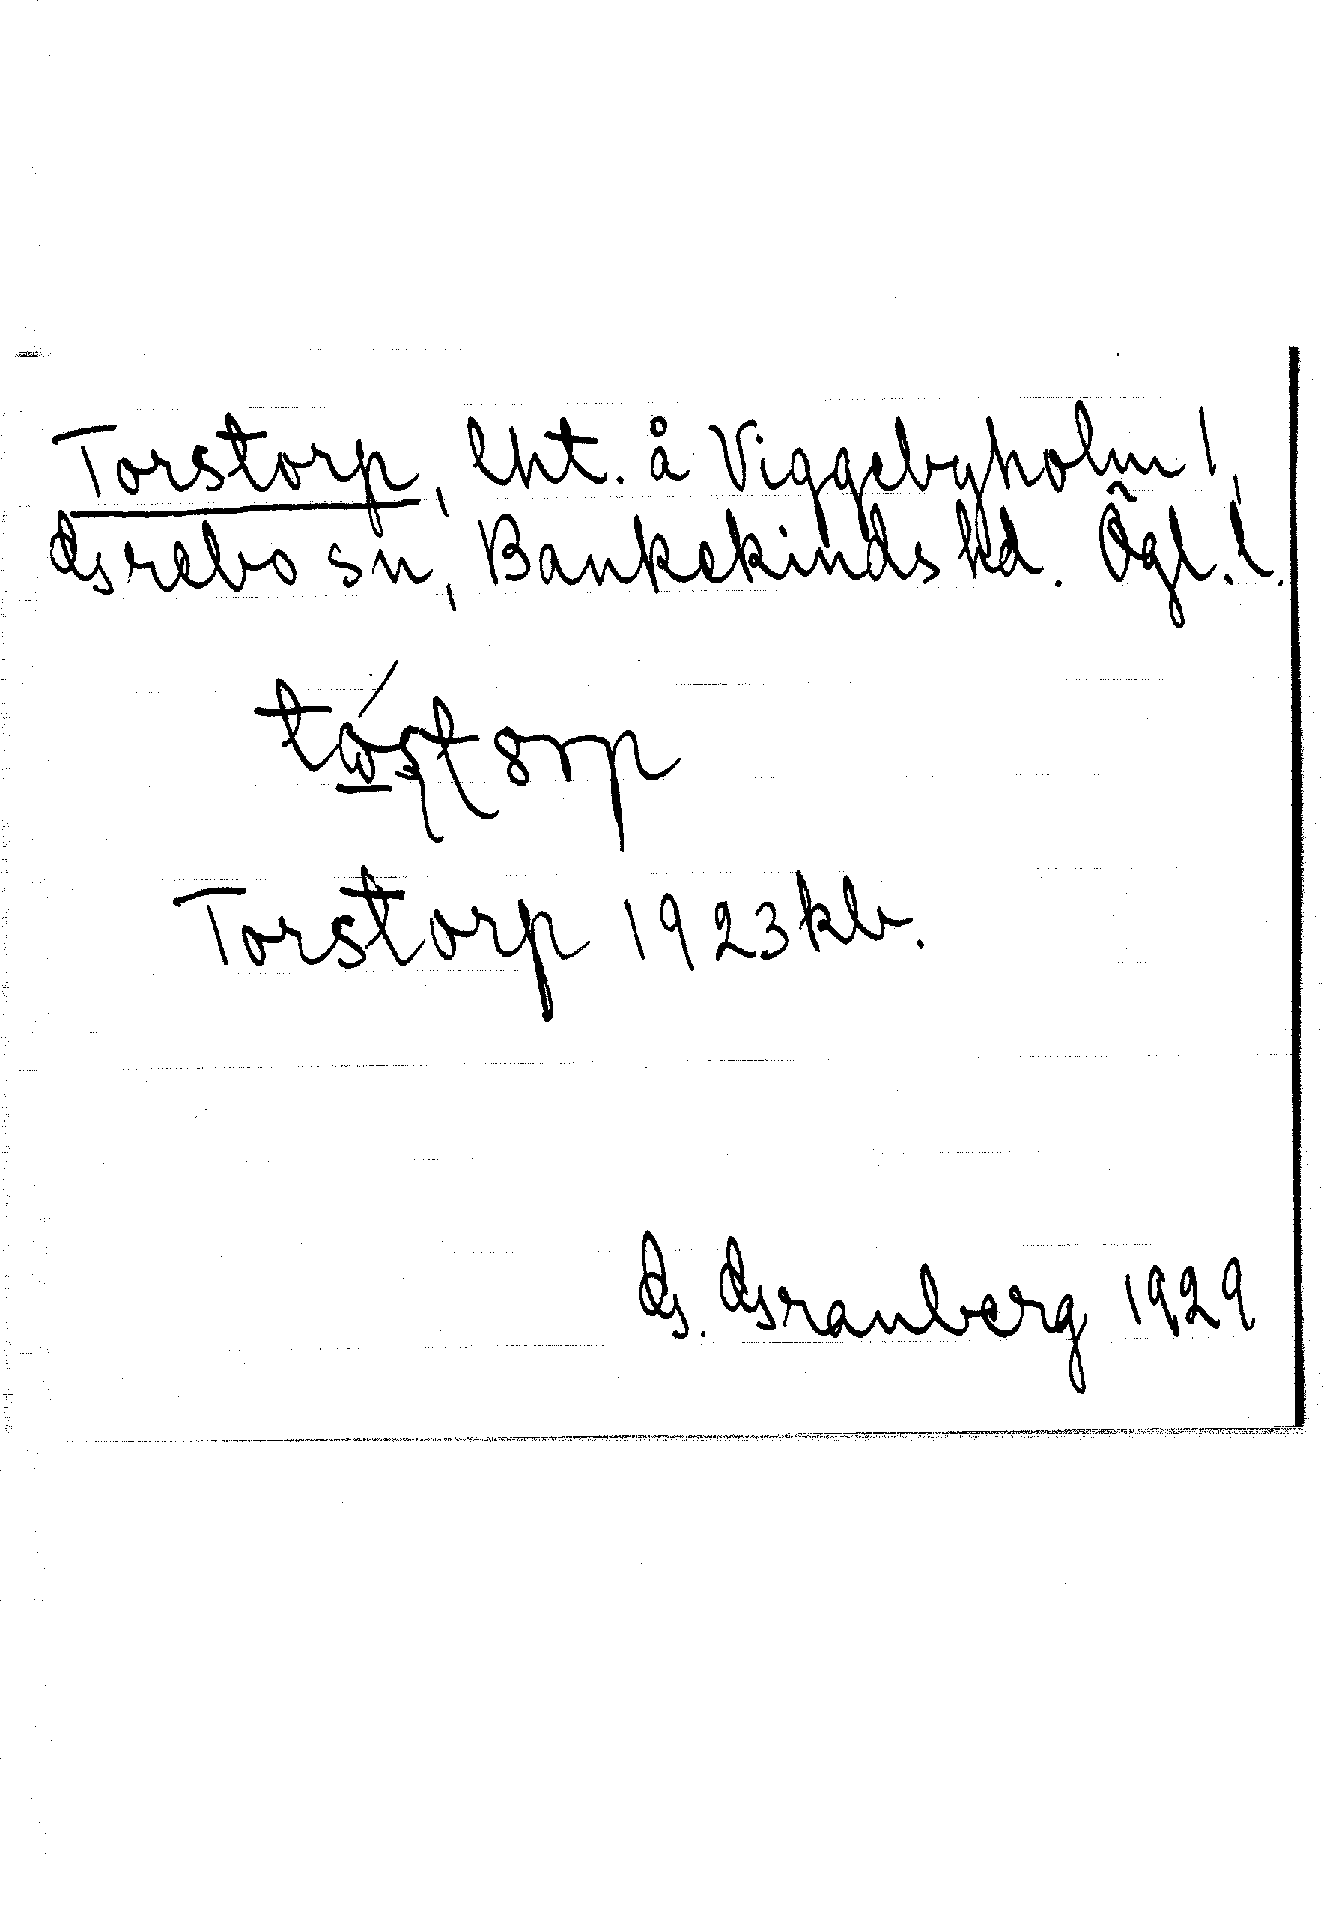 Torstorp, lht. å Viggebyholm 1,
Grebo sn, Bankekinds hd. Ögl. l.
Torstorp 1923 kb.
G. Granberg 1929